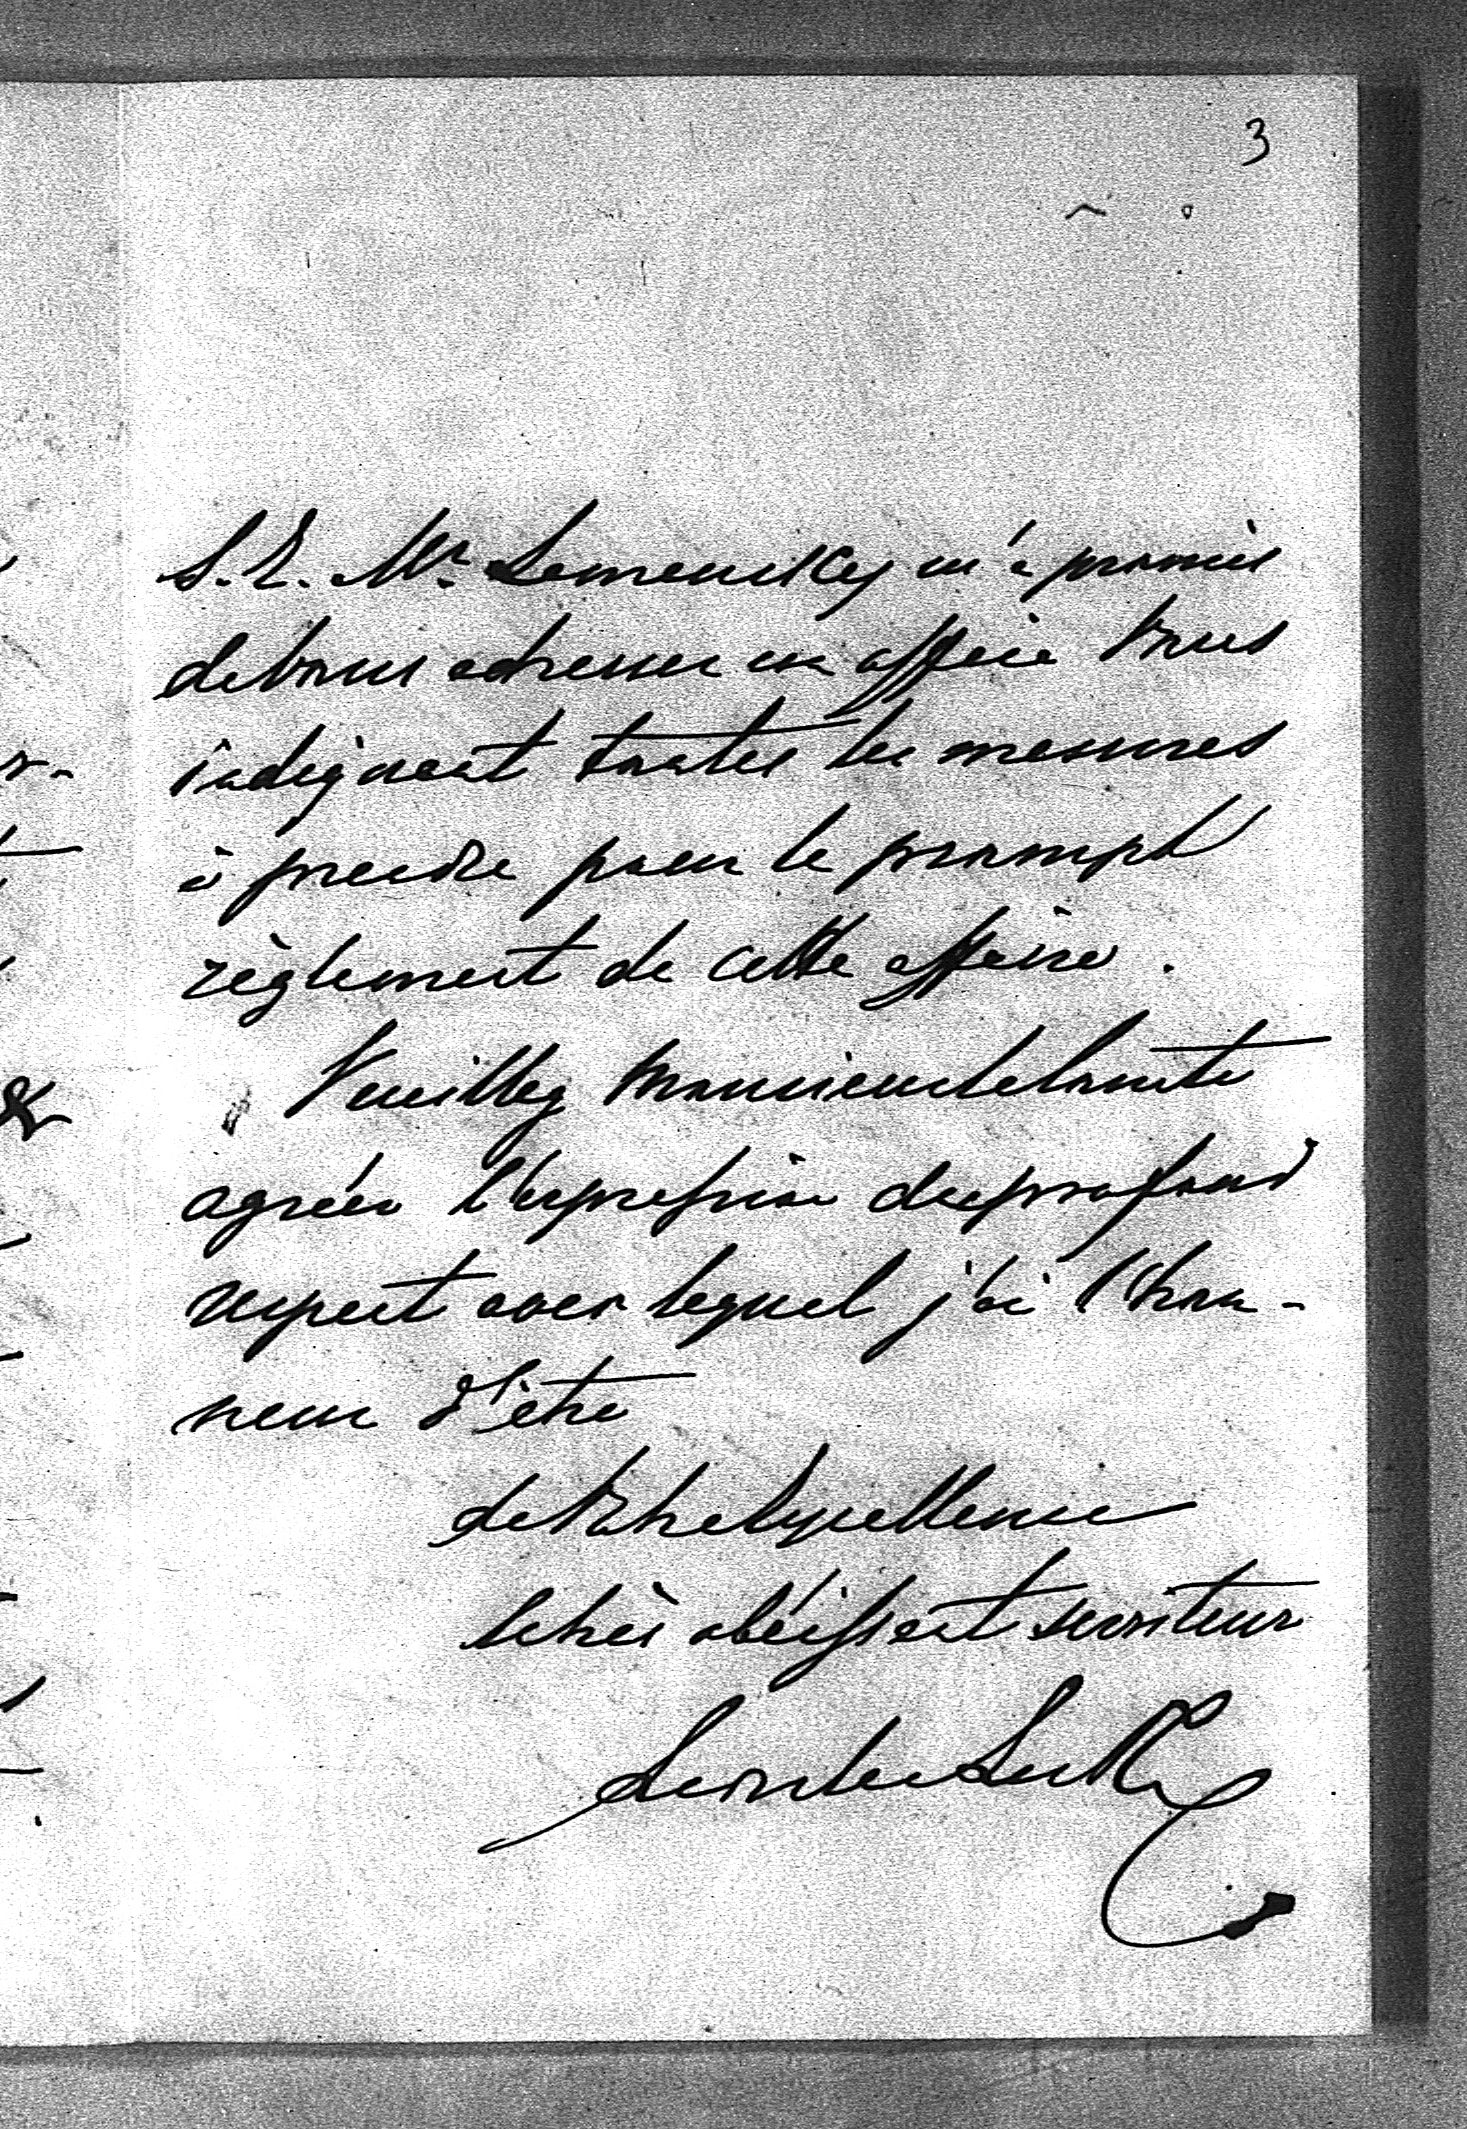 3
S. E. Mr. Semensky m'a promis
de vous adresser un office vous
indiquant toutes les mesures
à prendre pour le prompt
règlement de cette affaire.
Veuillez Monsieur le Comte
agréer l'expression du profond
respect avec lequel j'ai l'hon-
neur d'être
de Votre Excellence
le très obéissant serviteur